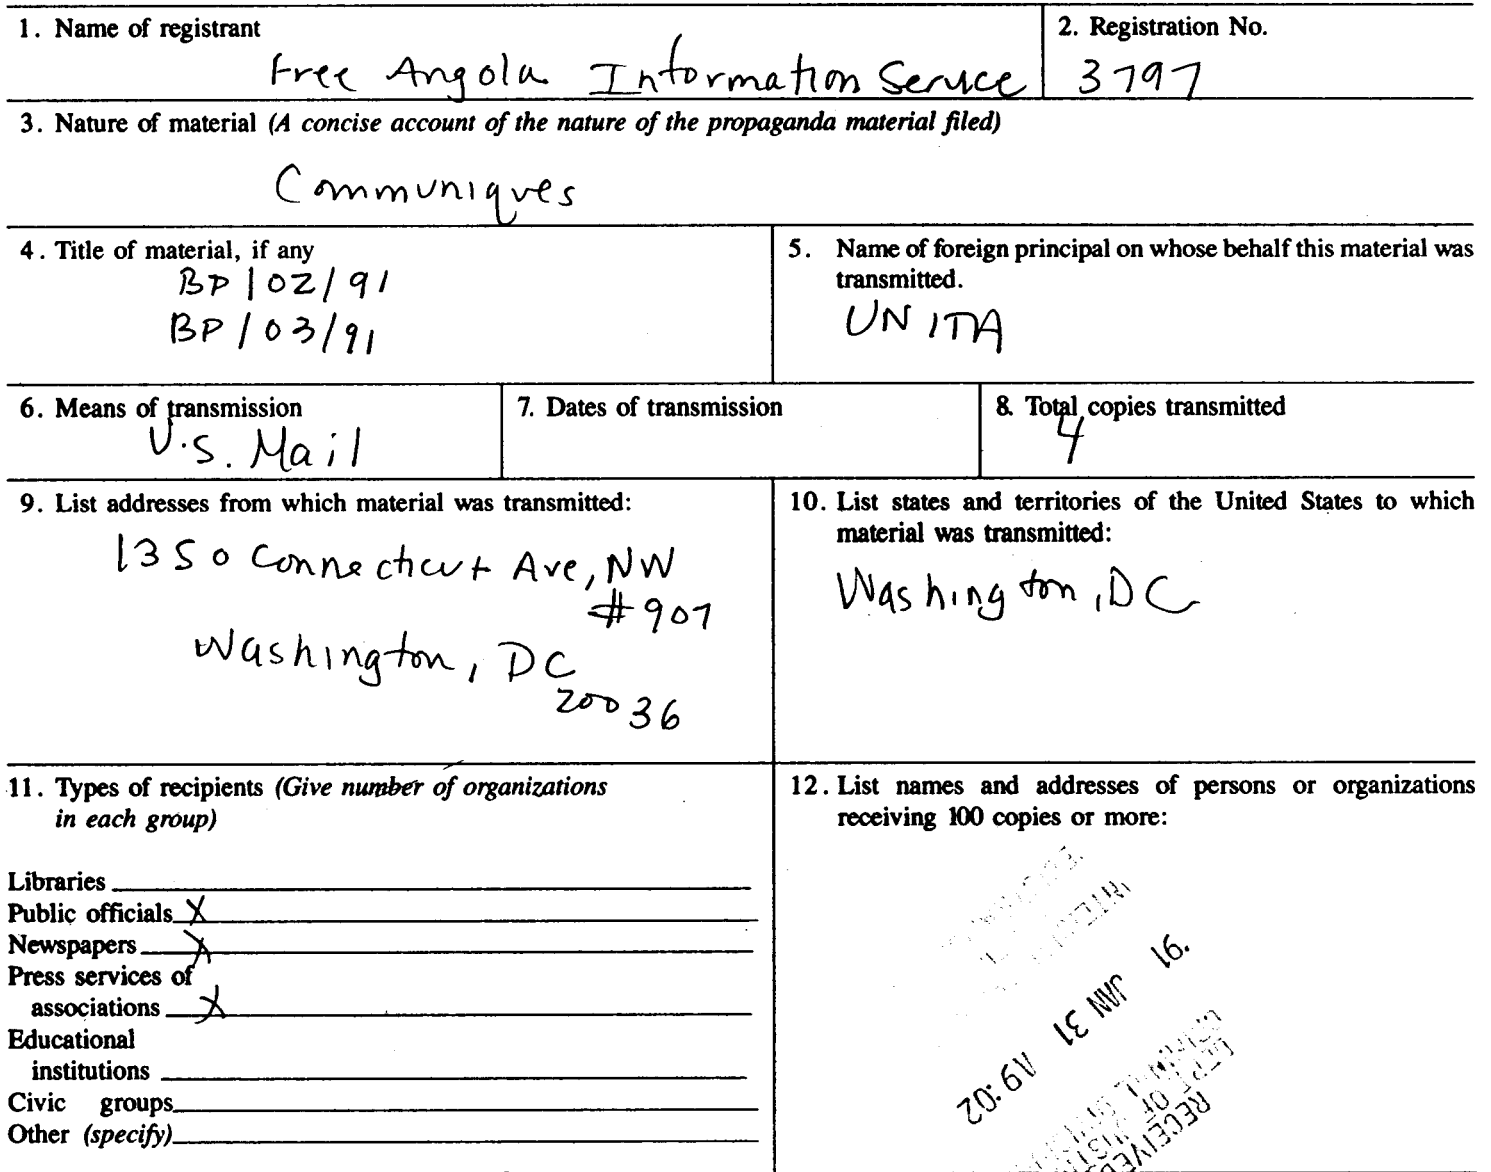 1. Name of registrant
Free Angola Information Service
2. Registration No.
3797
3. Nature of material (A concise account of the nature of the propaganda material filed)
Communiques
4. Title of material, if any
BP/02/91
BP/03/91
5. Name of foreign principal on whose behalf this material was
transmitted.
UNITA
6. Means of transmission
U.S. Mail
7. Dates of transmission
8. Total copies transmitted
4
9. List addresses from which material was transmitted:
1350 Connecticut Ave, NW
#907
Washington, DC
20036
10. List states and territories of the United States to which
material was transmitted:
Washington, DC
11. Types of recipients (Give number of organizations
in each group)
Libraries
Public officials X
Newspapers X
Press services of
associations X
Educational
institutions
Civic groups
Other (specify)
12. List names and addresses of persons or organizations
receiving 100 copies or more:
'91 JAN 31 A9:02
RECEIVED
DEPT OF